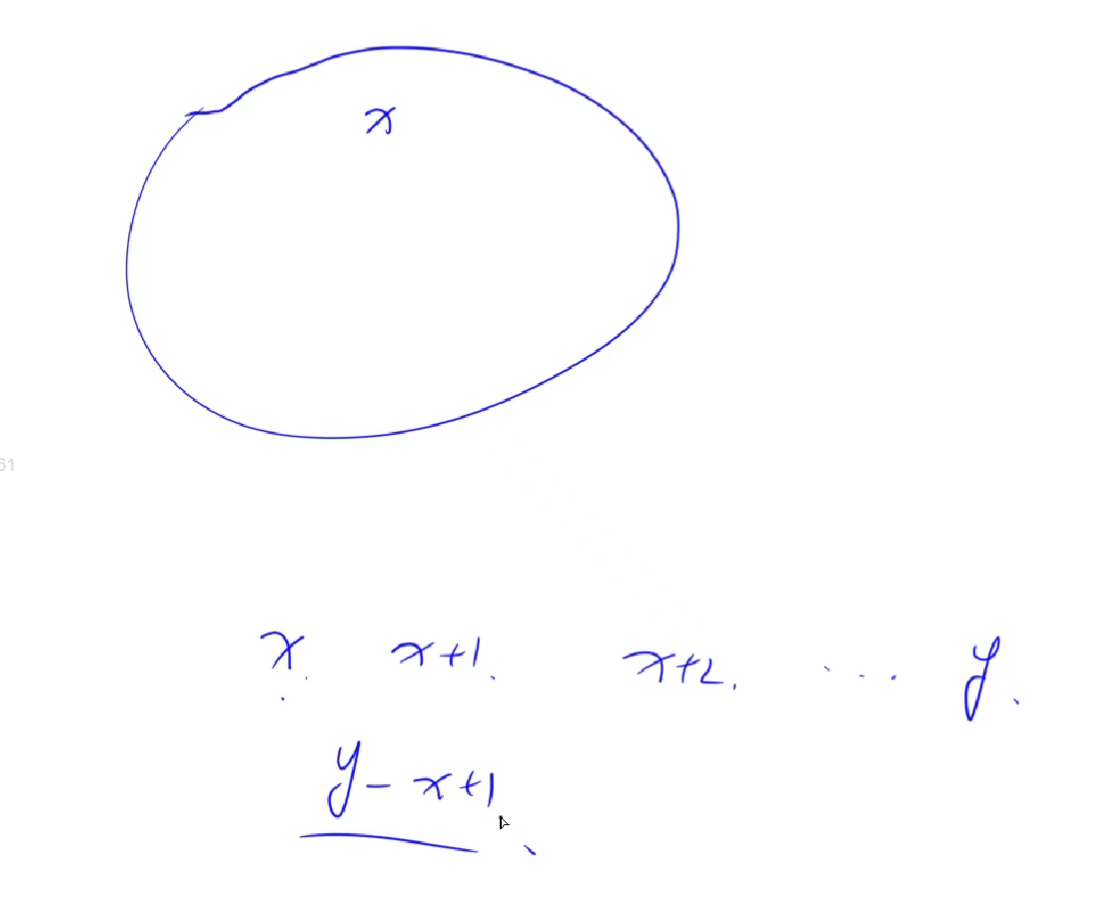 x
61
x. x+1. x+2. ... y.
y-x+1.